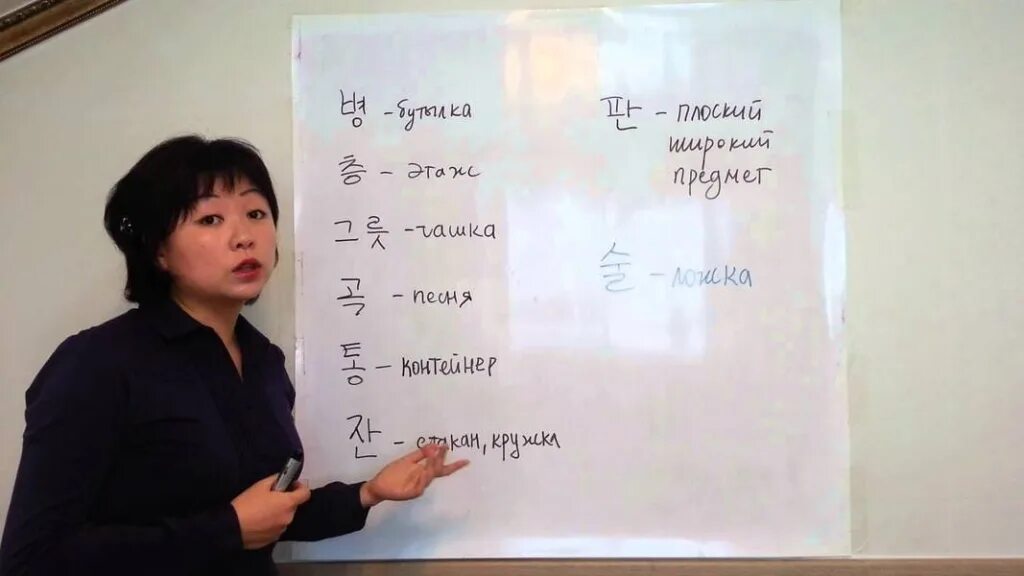 병 - бутылка
층 - этаж
그릇 - чашка
곡 - песня
통 - контейнер
잔 - стакан, кружка
판 - плоский
широкий
предмет
술 - ложка